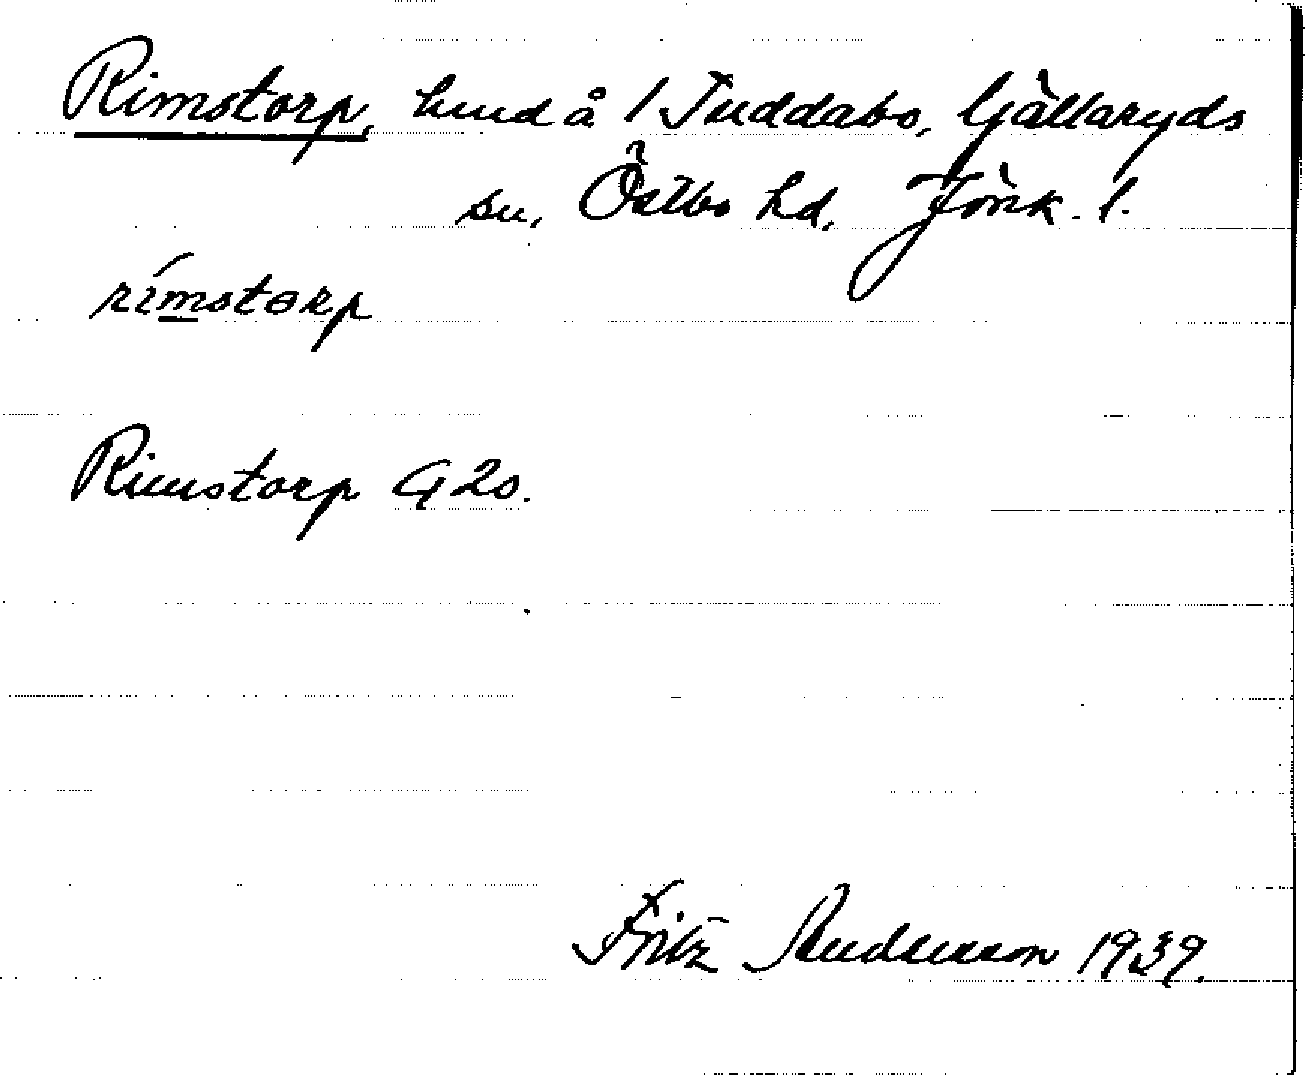 Rimstorp, hmd å 1 Tuddabo, Gällaryds
sn, Östbo hd, Jönk. l.
rímstorp
Rimstorp G 20.
Fritz Andersson 1939.